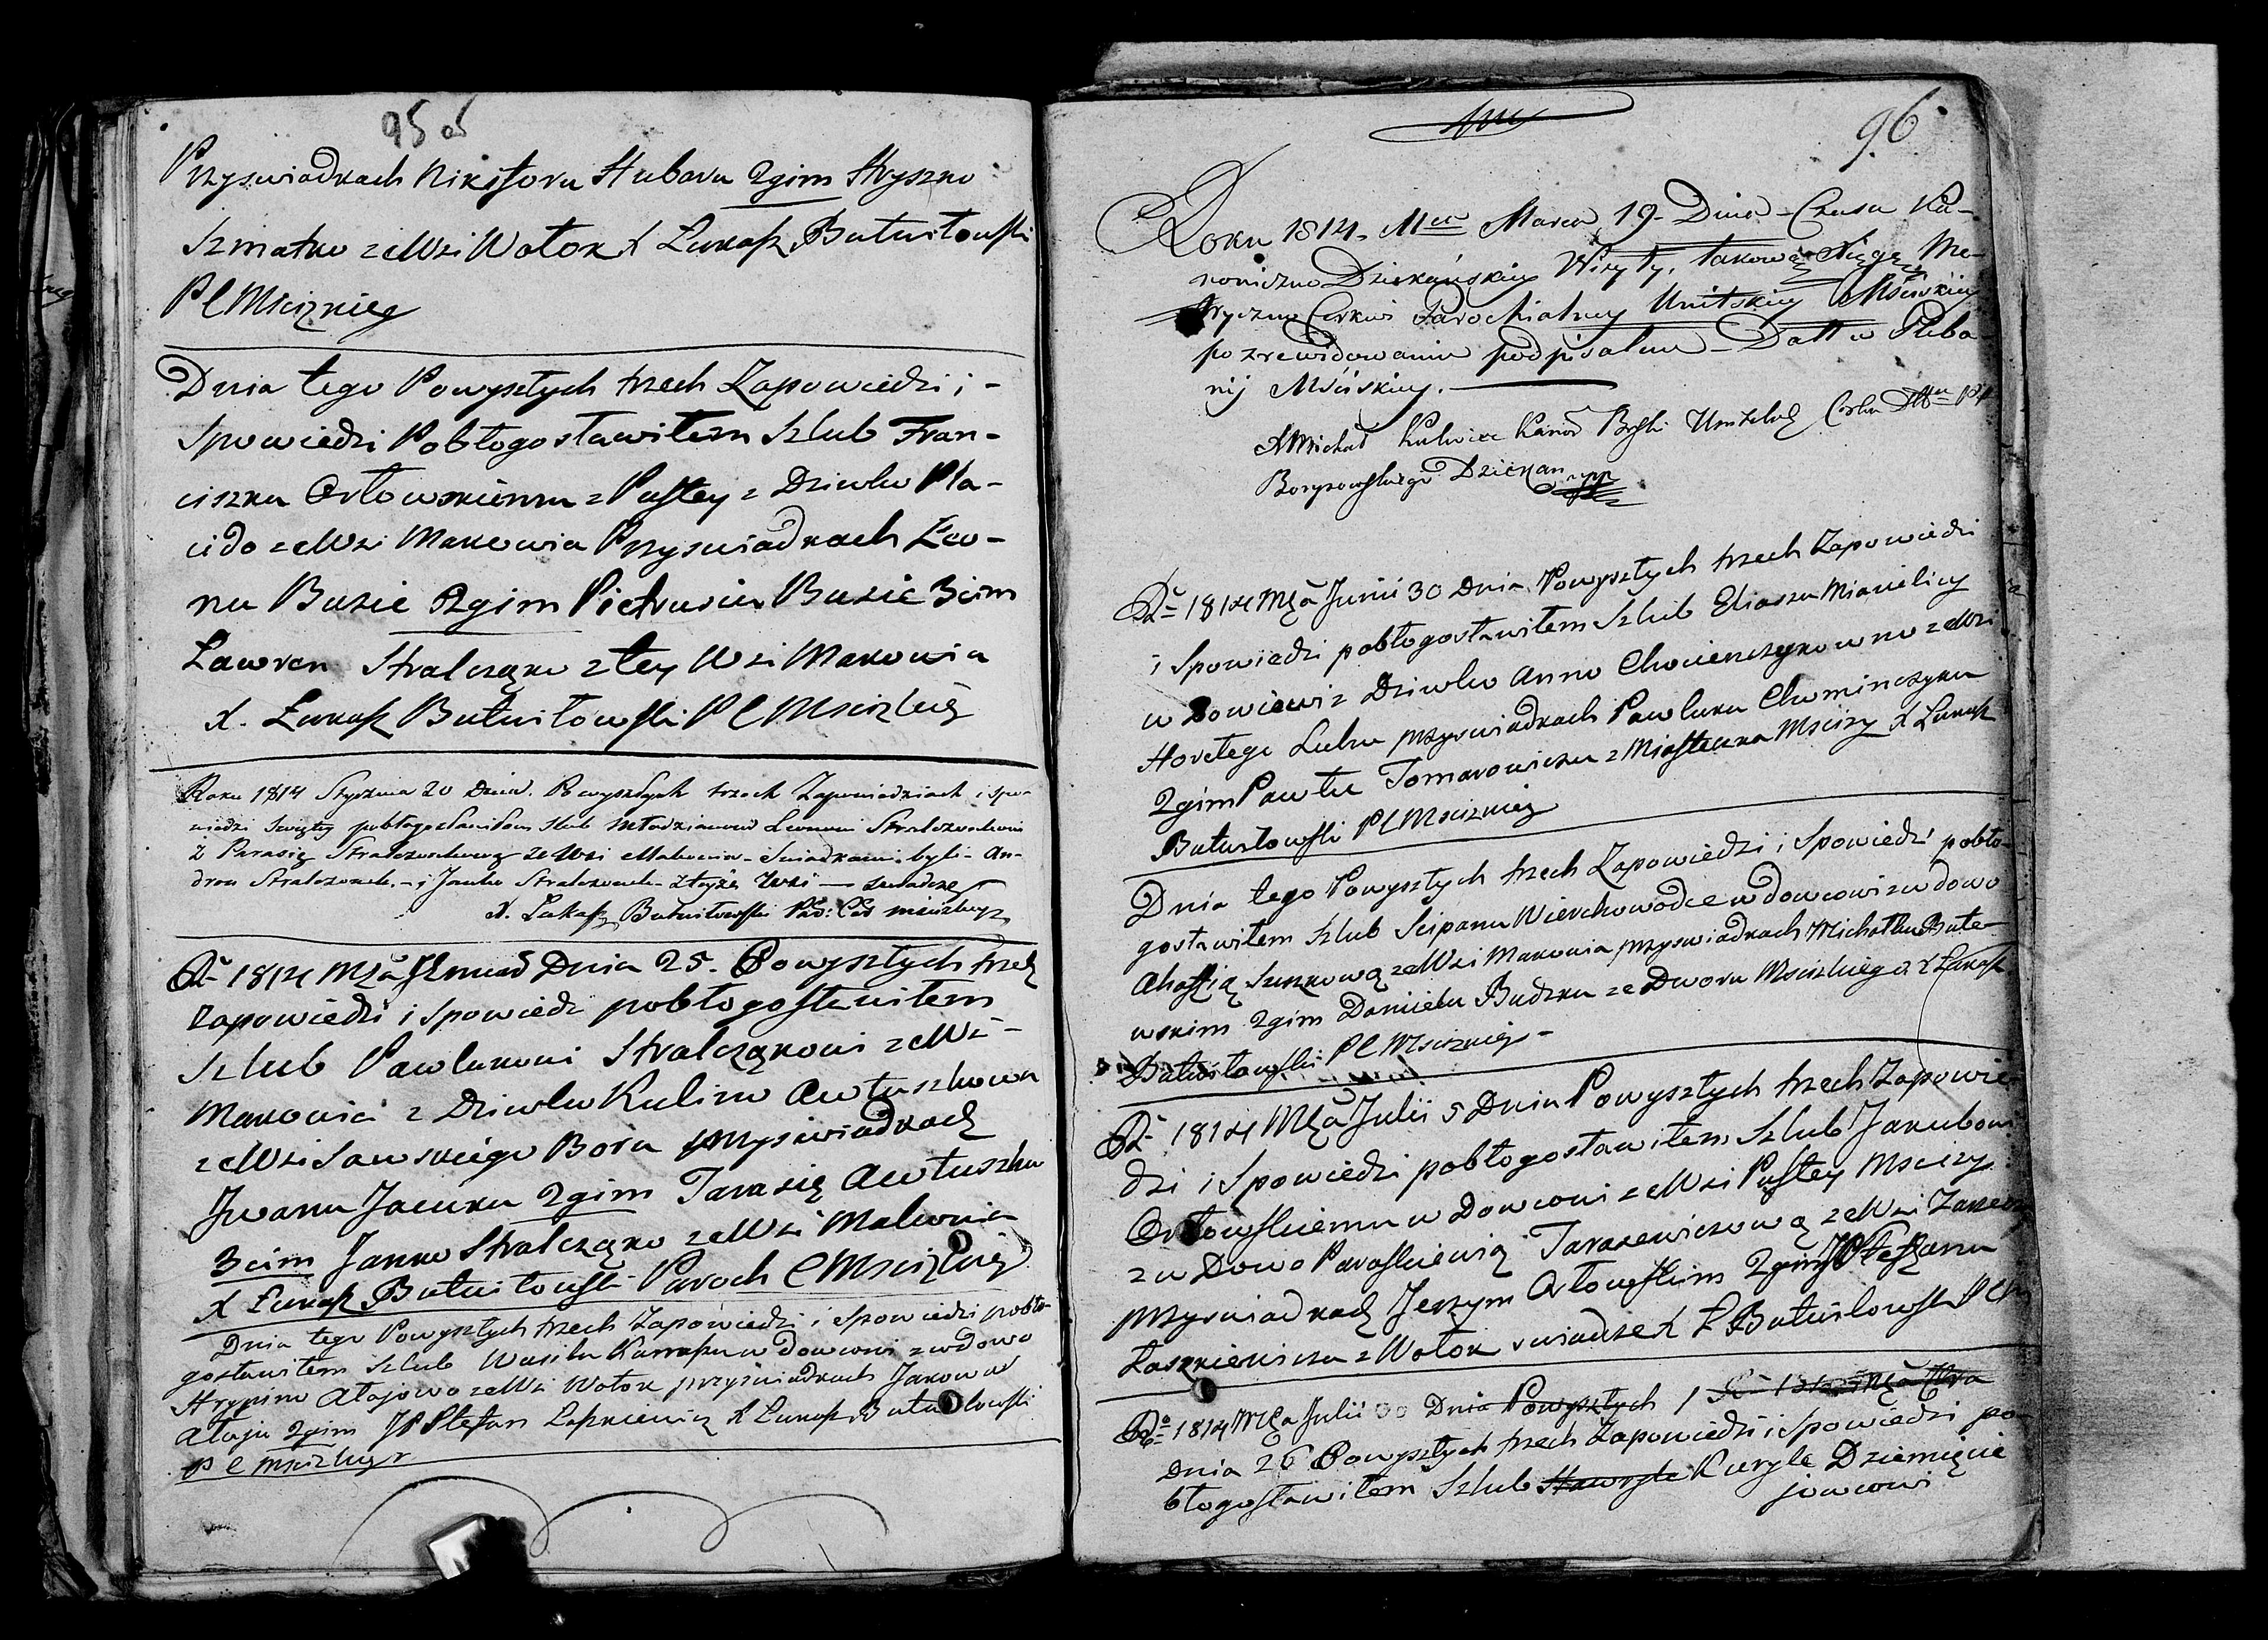 95 об
Przyswiadkach Nikiforu Hubaru 2gim Hryszko
Szmatko ze Wsi Wołok X Łukasz Butwiłowski
P C Mscizkiey
Dnia tego Powyszłych trzech Zapowiedzi i -
Spowiedzi Pobłogosławiłem Szlub Fran-
ciszku Orłowskiemu z Pustey z Dziwko Pla-
cido ze Wsi Makowia Przyswiadkach Leo-
nu Busie 2gim Pietrusiu Busie 3cim
Lawren Stralcząko z tey Wsi Makowia
X. Łukasz Butwiłowski P C Mscizkiey
Roku 1814 Stycznia 20 Dnia. Powyszłych trzech Zapowiedziach i spo-
wiedzi swiętey pobłogosławiłem slub Młodzianowi Leonowi Stralczonkowi
Z Parasią Stralczonkową ze Wsi Makowia - Swiadkami byli - An-
dron Stralczonek. - i Janko Stralczonek - z teyże Wsi — swiadczę
X. Łukasz Butwiłowski Par: Cer: mscizkiey
R 1814 Mca Dnia 25. Powyszłych trzech
Zapowiedzi i Spowiedz pobłogosławiłem
Szlub Pawlukowi Stralcząkowi ze Wsi
Makowia z Dziwko Kulino Awtuszkowo
ze Wsi Sawskiego Boru przyswiadkach
Jwanu Jacuku 2gim Tarasię Awtuszku
3cim Janko Stralcząko ze Wsi Makowia
X Łukasz Butwiłowski Paroch C Mscizkiey
Dnia tego Powyszłych trzech Zapowiedzi i Spowiedzi pobło-
gosławiłem Szlub Wasilu wdowcowi z wdowo
Hrypino Atajowo ze Wsi Wołok przyswiadkach Jakowu
Ataju 2gim JP Stefan Łaszkiewicz X Łukasz Butwiłowski
P C Mscizkiey
96
Roku 1814. Mca Marca 19. Dnia - Czasu Ka-
noniczno Dziekańskiey Wizyty, takową Xięgę Me-
tryczną Cerkwi Parochialney Unitskiey Msciskiey
po zrewidowaniu podpisałem - Datt w Pleba-
nij Mściskiey.
X Michał Kulwiec Kanon
Borysowskiego Dziekan mpp
R 1814 Mca Junii 30 Dnia Powyszłych trzech Zapowiedzi
i Spowiedzi pobłogosławiłem Szlub Eliaszu
wdowcowi z Dziwko Anno Chocienczykowno ze Wsi
Horełego Luhu przyswiadkach Pawluku Chominczyku
2gim Pawłu Tomarowiczu z Miasteczka Mscizy X Łukasz
Butwiłowski P C Mscizkiey
Dnia tego Powyszłych trzech Zapowiedzi i Spowiedzi pobło-
gosławiłem Szlub Scipanu Wierchowodce wdowcowi z wdowo
Ahafią Suszkową ze Wsi Makowia przyswiadkach Michałku Bute-
wskim 2gim Danielu Budzku ze Dworu Mscizkiego X Łukasz
Butwiłowski P C Mscizkiey -
R 1814 Mca Julii 5 Dnia Powyszłych trzech Zapowie-
dzi i Spowiedzi pobłogosławiłem Szlub Jakubowi
Orłowskiemu wdowcowi ze Wsi Pustey Mscizy
z wdowo Paraskiewią Tarasewiczową ze Wsi
przyswiadkach Jerzym Orłowskim 2gim JP Stefanu
Łaszkiewiczu z Wołok swiadcze X Ł Butwiłowski P C M
R 1814 Mca Julii Dnia Powyszłych
Dnia 26 Powyszłych trzech Zapowiedzi i Spowiedzi po-
błogosławiłem Szlub Hawryle Kuryle Dziemięcie
jowcowi